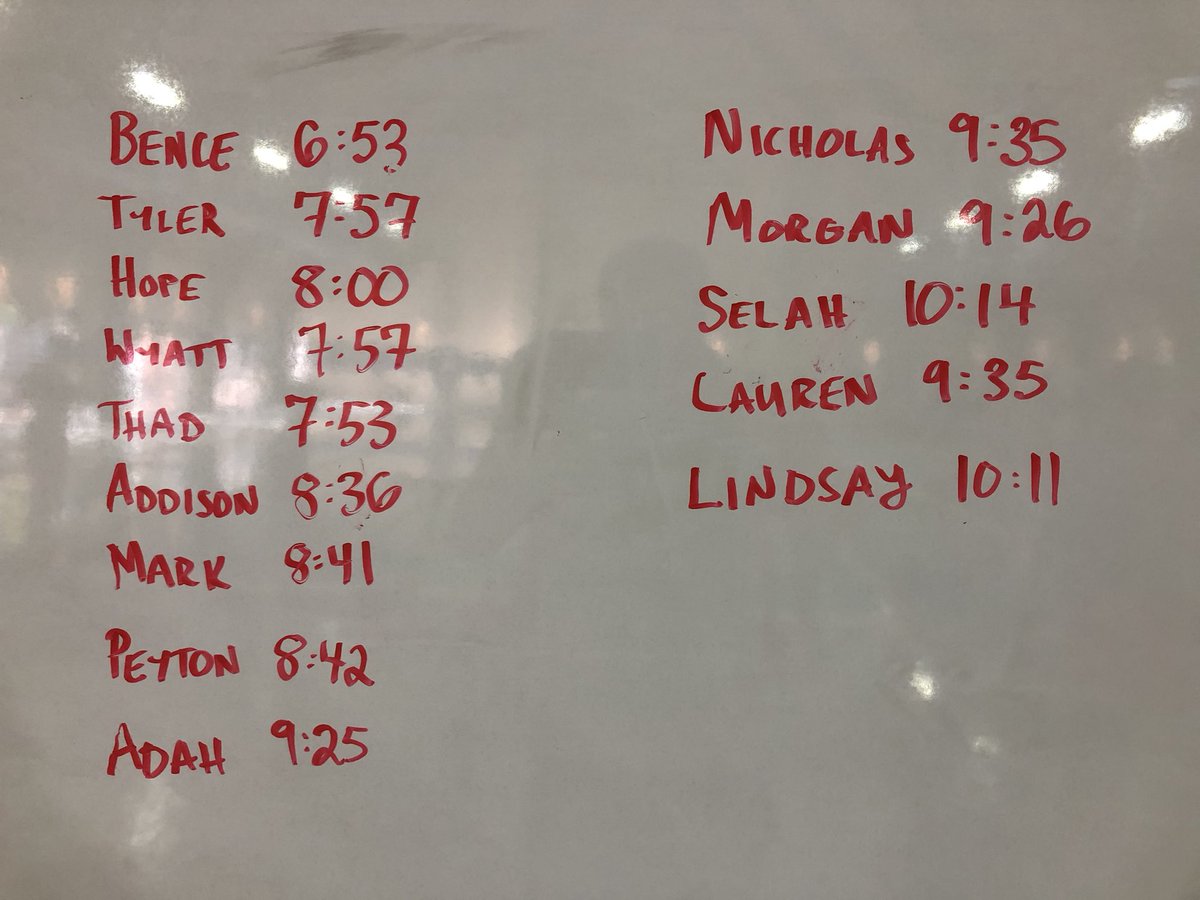 BENCE 6:53
TYLER 7:57
HOPE 8:00
WYATT 7:57
THAD 7:53
ADDISON 8:36
MARK 8:41
PEYTON 8:42
ADAH 9:25
NICHOLAS 9:35
MORGAN 9:26
SELAH 10:14
LAUREN 9:35
LINDSAY 10:11